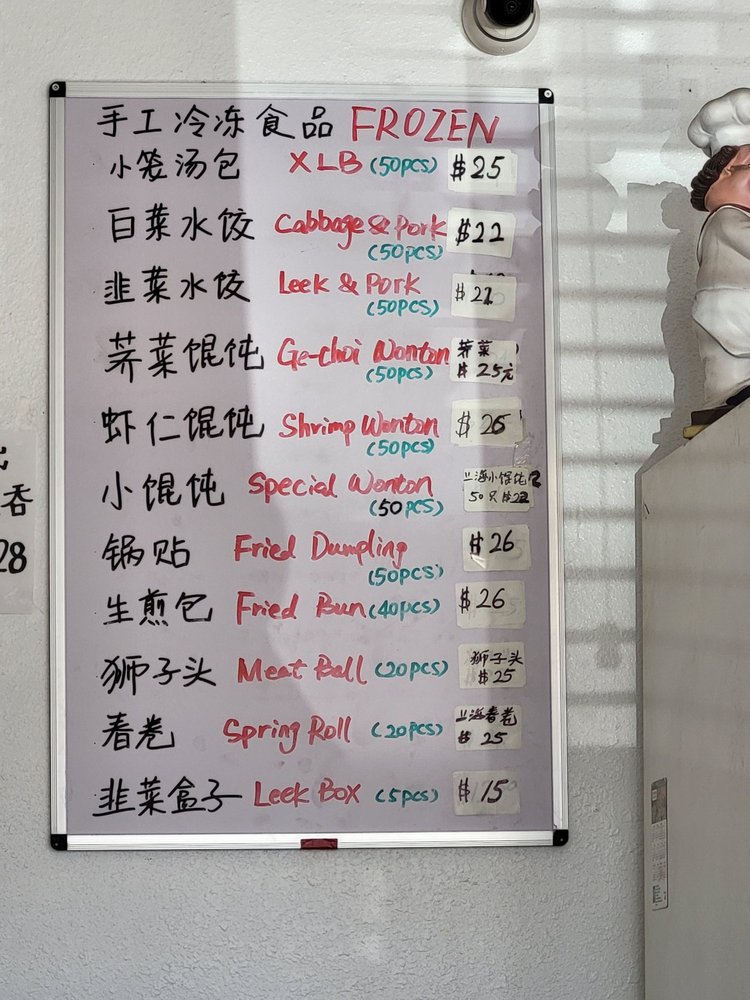 手工冷冻食品 FROZEN
小笼汤包 XLB (50pcs) $25
白菜水饺 Cabbage & Pork $22
(50pcs)
韭菜水饺 Leek & Pork $21
(50pcs)
荠菜馄饨 Ge-choi Wonton 荠菜
(50pcs) $25元
虾仁馄饨 Shrimp Wonton $26
(50pcs)
小馄饨 Special Wonton 上海小馄饨
(50pcs) 50只 $22
锅贴 Fried Dumpling $26
(50pcs)
生煎包 Fried Bun (40pcs) $26
狮子头 Meat Ball (20pcs) 狮子头
$25
春卷 Spring Roll (20pcs) 上海春卷
$25
韭菜盒子 Leek Box (5pcs) $15
吞
28